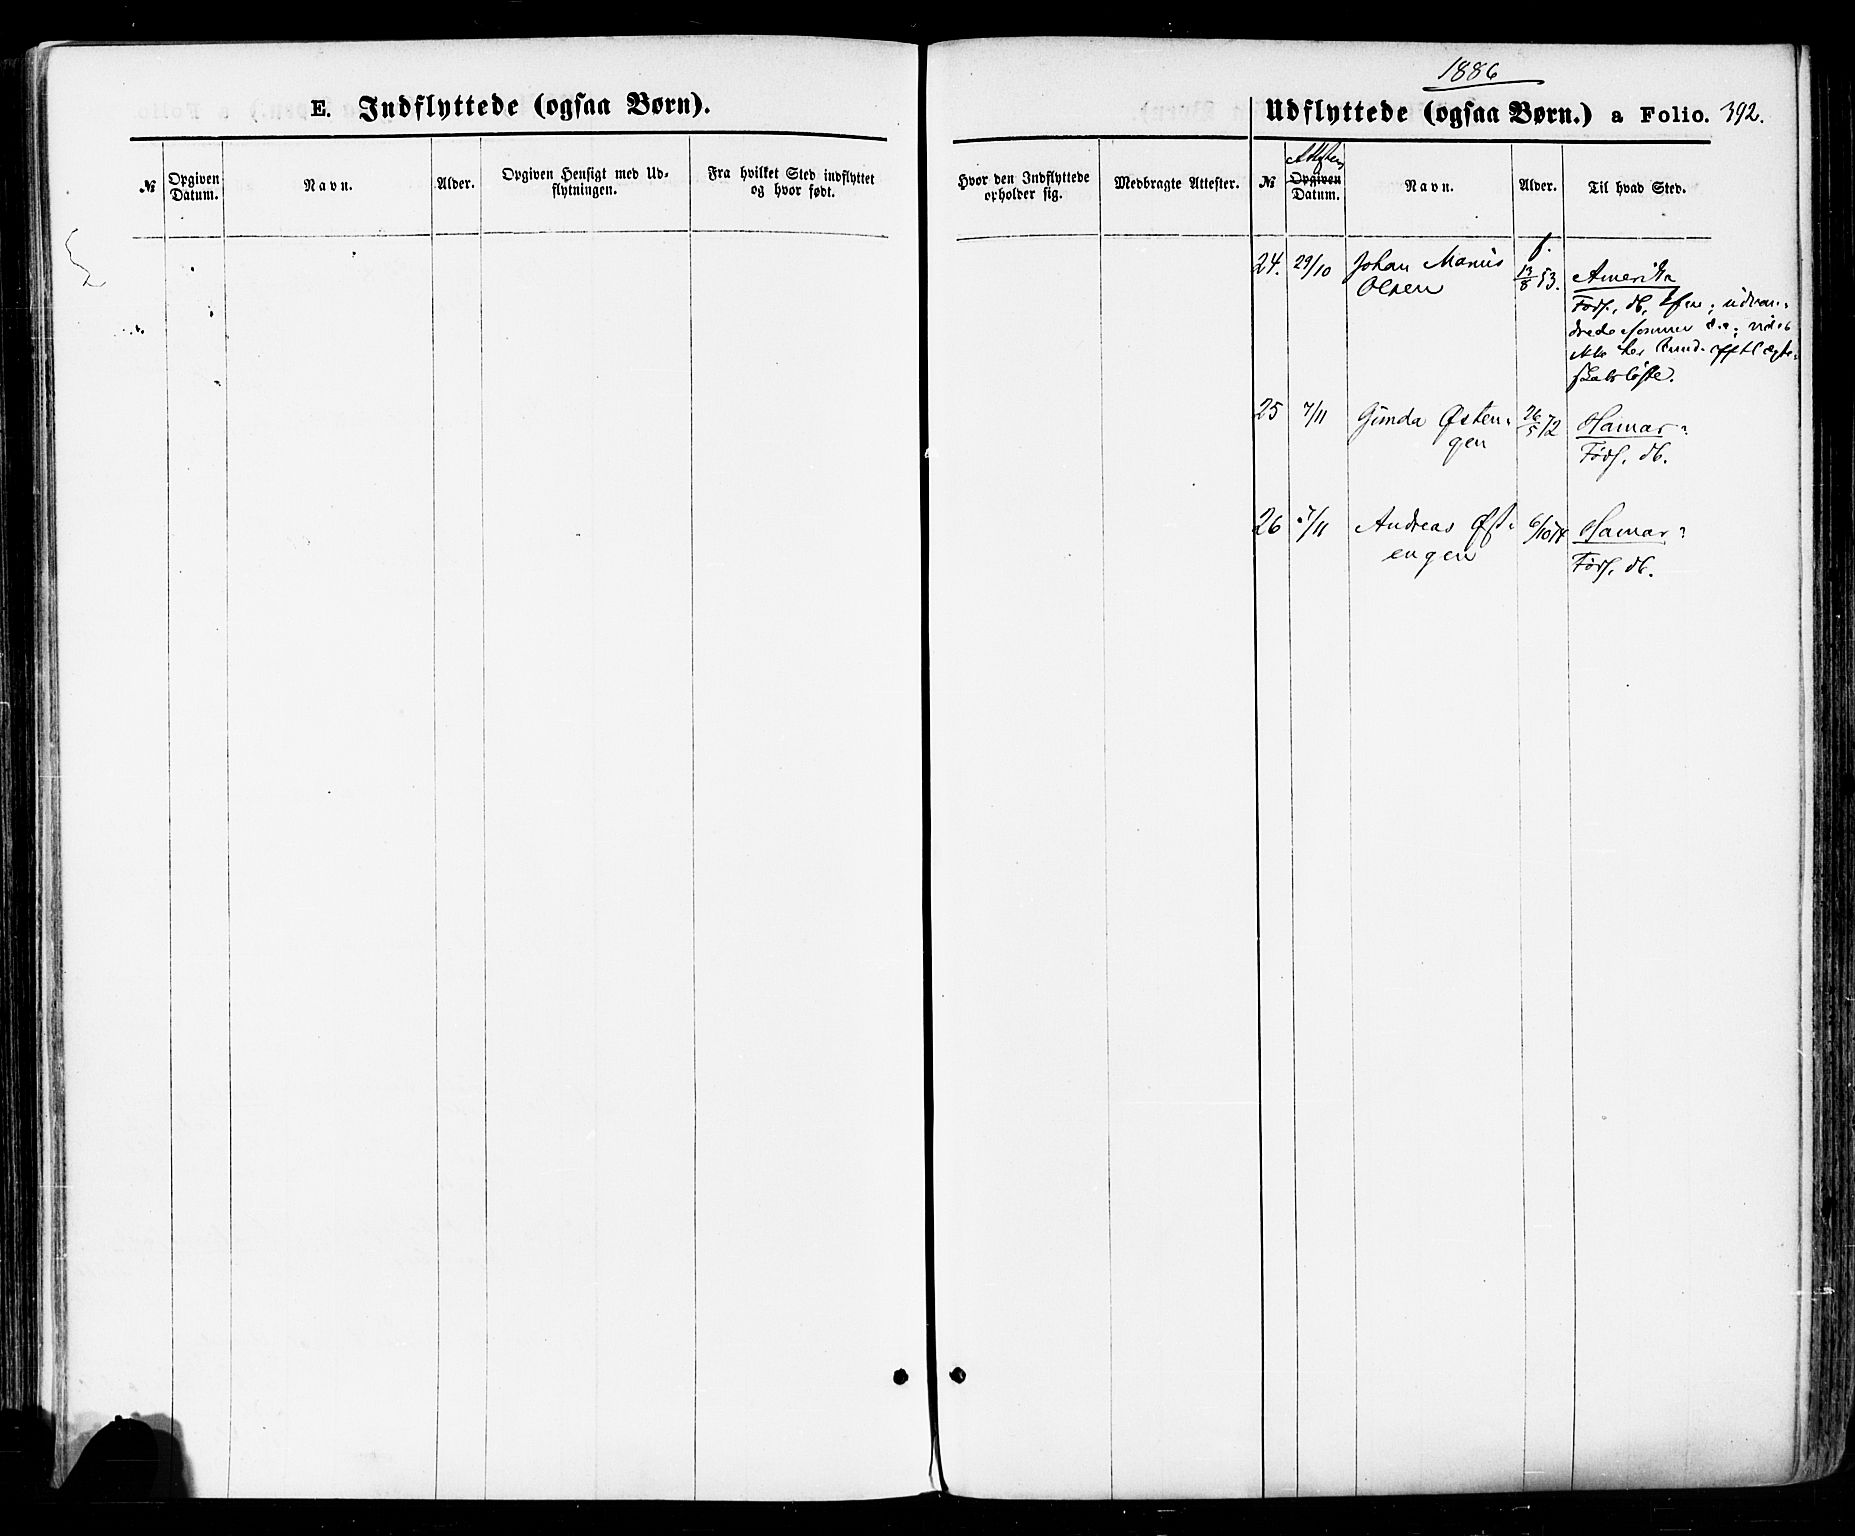 E. Indflyttede (ogsaa Børn).
№
Opgiven Datum.
Navn.
Alder.
Opgiven Hensigt med Ud-
flytningen.
Fra hvilket Sted indflyttet
og hvor født.
1886
Udflyttede (ogsaa Børn.) a Folio. 392.
Hvor den Indflyttede
opholder sig.
Medbragte Attester.
№
Attestens
Opgiven
Datum.
Navn.
Alder.
Til hvad Sted.
24. 29/10 Johan Marius f. 13/8 53. Amerika
Olsen Føds., db,
ikke her
25 7/11 Gunda Østen- 26/5 72 Hamar-
gen Føds. db.
26 7/11 Andreas Øst- 6/10 74 Hamar-
engen Føds. db.